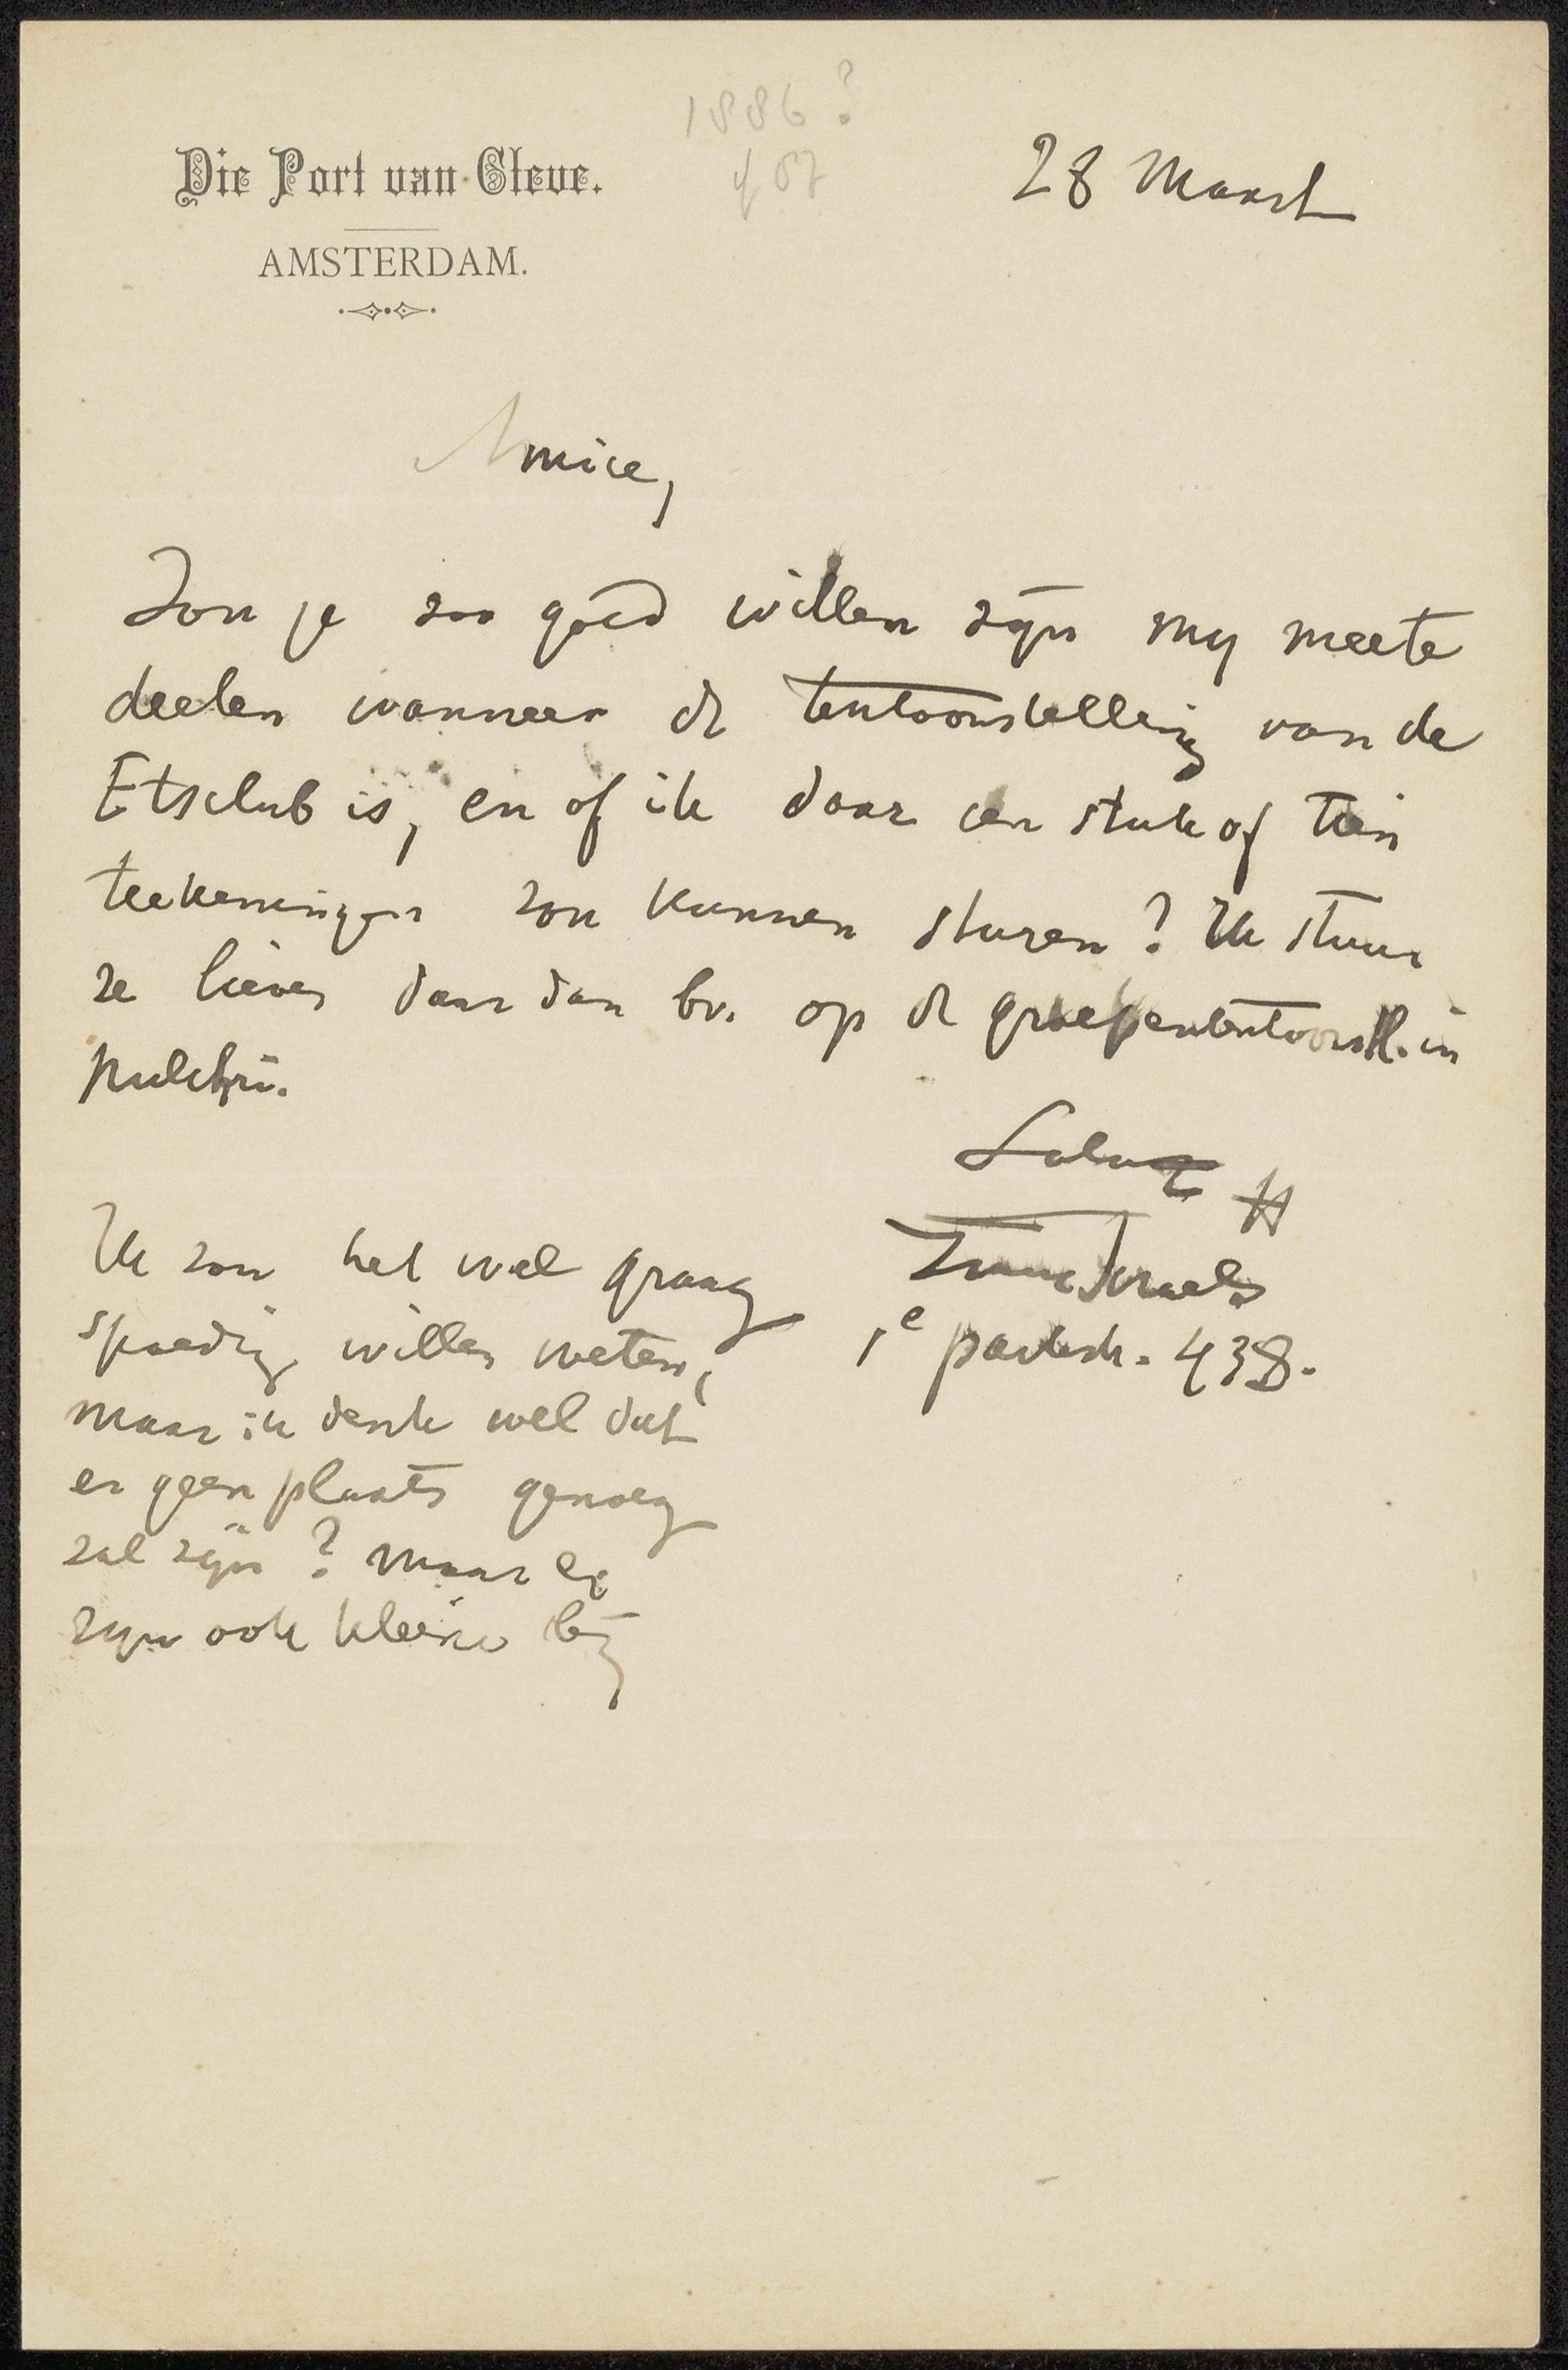 1886?
Die Port van Cleve.
28 Maart
AMSTERDAM.
Amice,
Zou je zoo goed willen zijn my meete
deelen wanneer de tentoonstelling van de
Etsclub is, en of ik daar een stuk of tien
teekeningen zou kunnen sturen? Ik stuur
ze liever daar dan bv. op de groepententoonst. in
pulchri.
Saluut
Isaac Israels
1e parkstr. 438.
Ik zou het wel graag
spoedig willen weten,
maar ik denk wel dat
er geen plaats genoeg
zal zijn? maar er
zyn ook kleine bij